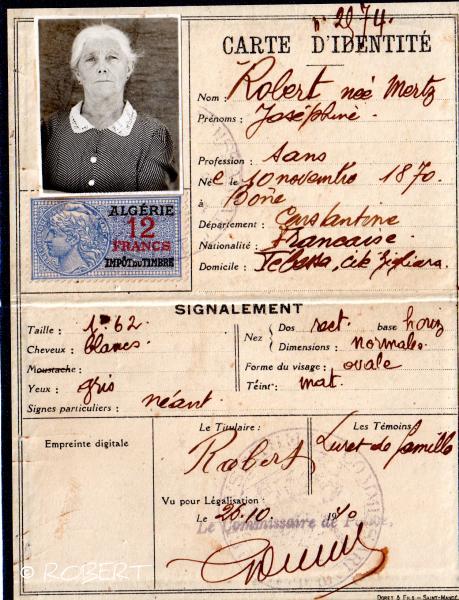 N° 2074.
CARTE D'IDENTITÉ
Nom : Robert née Mertz
Prénoms : Joséphine
Profession : sans
Née le 10 novembre 1870
à Bône
Département : Constantine
Nationalité : Française
Domicile : Tebessa, cité
ALGÉRIE
12
FRANCS
IMPÔT DU TIMBRE
SIGNALEMENT
Taille : 1m62
Cheveux : blancs
Moustache :
Yeux : gris
Signes particuliers : néant.
Nez Dos rect. base horiz
Dimensions : normales
Forme du visage : ovale
Teint : mat.
Empreinte digitale
Le Titulaire :
Robert
Les Témoins
Livret de famille
Vu pour Légalisation :
Le 26.10 1940
Le Commissaire de Police,
DORET & FILS - SAINT-MANDÉ
© ROBERT